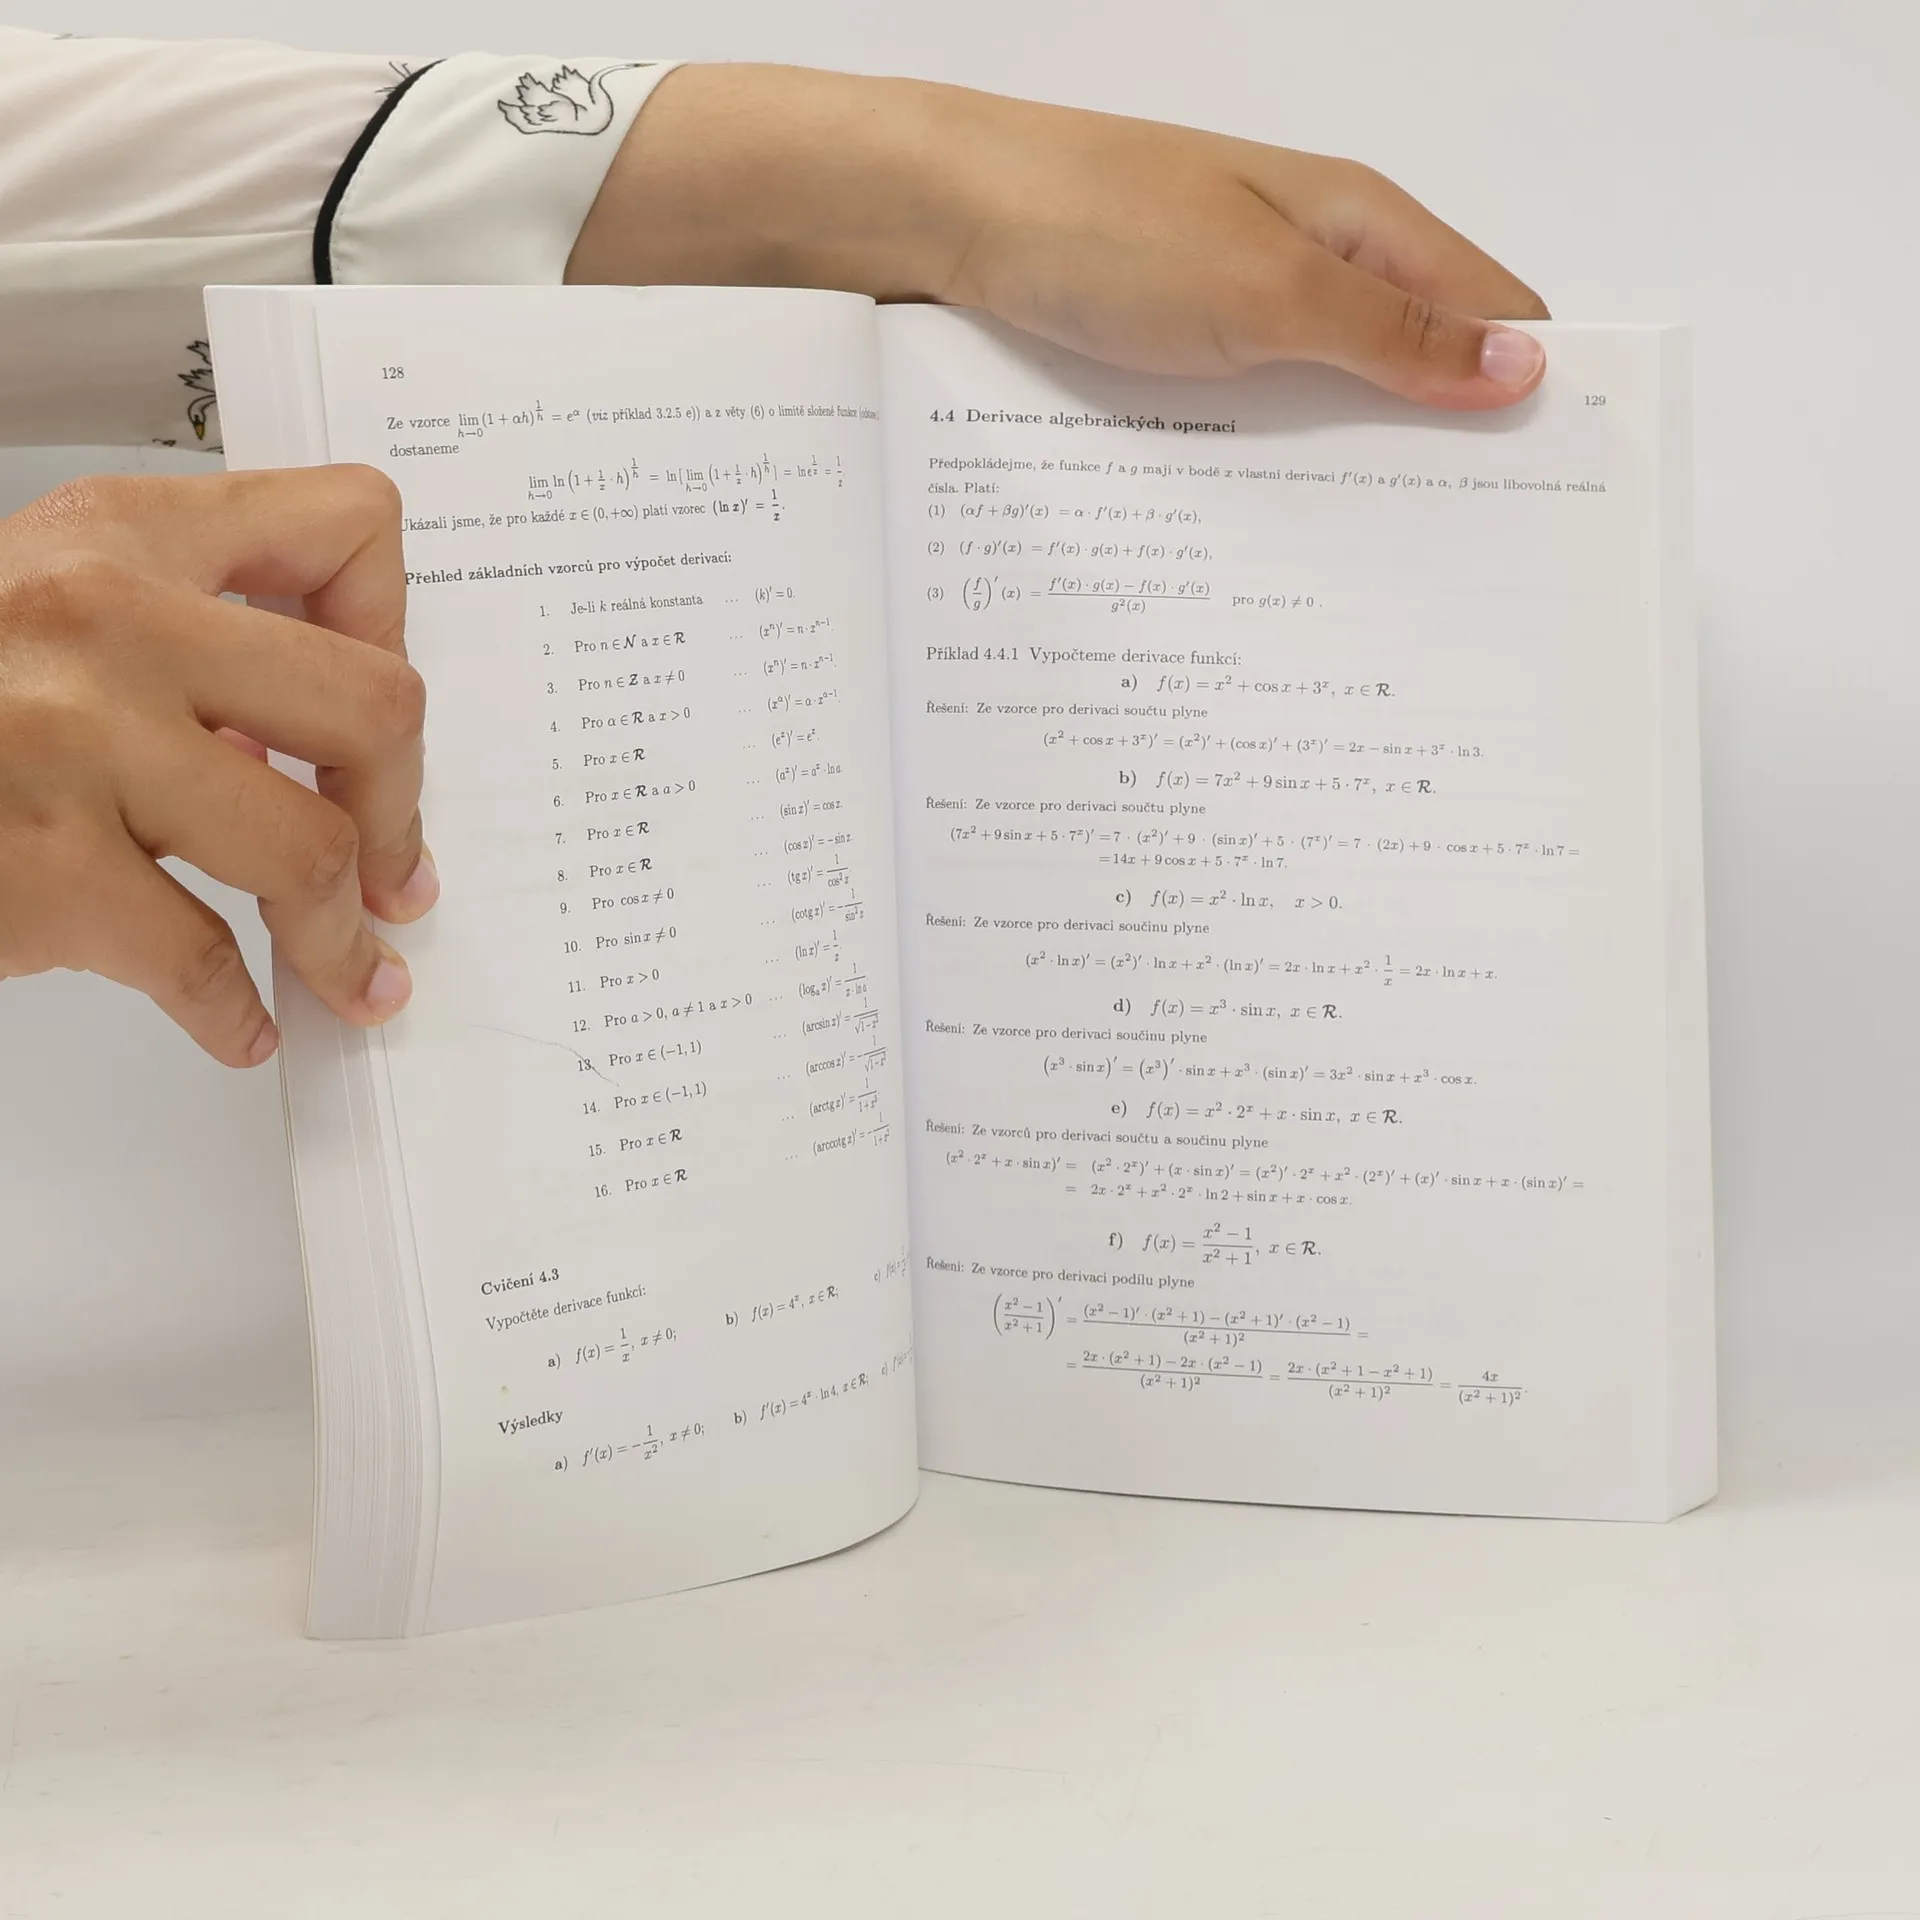 128
Ze vzorce lim h→0 (1 + αh)^(1/h) = e^α (viz příklad 3.2.5 e)) a z věty (6) o limitě složené funkce
dostaneme
lim h→0 ln (1 + 1/x · h)^(1/h) = ln[ lim h→0 (1 + 1/x · h)^(1/h) ] = ln e^(1/x) = 1/x.
Ukázali jsme, že pro každé x ∈ (0, +∞) platí vzorec (ln x)′ = 1/x.
Přehled základních vzorců pro výpočet derivací:
1. Je-li k reálná konstanta … (k)′ = 0.
2. Pro n ∈ N a x ∈ R … (xⁿ)′ = n · xⁿ⁻¹.
3. Pro n ∈ Z a x ≠ 0 … (xⁿ)′ = n · xⁿ⁻¹.
4. Pro α ∈ R a x > 0 … (x^α)′ = α · x^(α−1).
5. Pro x ∈ R … (e^x)′ = e^x.
6. Pro x ∈ R a a > 0 … (a^x)′ = a^x · ln a
7. Pro x ∈ R … (sin x)′ = cos x.
8. Pro x ∈ R … (cos x)′ = − sin x.
9. Pro cos x ≠ 0 … (tg x)′ = 1/cos² x.
10. Pro sin x ≠ 0 … (cotg x)′ = −1/sin² x
11. Pro x > 0 … (ln x)′ = 1/x.
12. Pro a > 0, a ≠ 1 a x > 0 … (logₐ x)′ = 1/(x · ln a)
13. Pro x ∈ (−1, 1) … (arcsin x)′ = 1/√(1−x²)
14. Pro x ∈ (−1, 1) … (arccos x)′ = −1/√(1−x²)
15. Pro x ∈ R … (arctg x)′ = 1/(1+x²)
16. Pro x ∈ R … (arccotg x)′ = −1/(1+x²)
Cvičení 4.3
Vypočtěte derivace funkcí:
a) f(x) = 1/x, x ≠ 0; b) f(x) = 4^x, x ∈ R; c)
Výsledky
a) f′(x) = −1/x², x ≠ 0; b) f′(x) = 4^x · ln 4, x ∈ R; c)
129
4.4 Derivace algebraických operací
Předpokládejme, že funkce f a g mají v bodě x vlastní derivaci f′(x) a g′(x) a α, β jsou libovolná reálná
čísla. Platí:
(1) (αf + βg)′(x) = α · f′(x) + β · g′(x),
(2) (f · g)′(x) = f′(x) · g(x) + f(x) · g′(x),
(3) (f/g)′ (x) = (f′(x) · g(x) − f(x) · g′(x))/g²(x) pro g(x) ≠ 0 .
Příklad 4.4.1 Vypočteme derivace funkcí:
a) f(x) = x² + cos x + 3^x, x ∈ R.
Řešení: Ze vzorce pro derivaci součtu plyne
(x² + cos x + 3^x)′ = (x²)′ + (cos x)′ + (3^x)′ = 2x − sin x + 3^x · ln 3.
b) f(x) = 7x² + 9 sin x + 5 · 7^x, x ∈ R.
Řešení: Ze vzorce pro derivaci součtu plyne
(7x² + 9 sin x + 5 · 7^x)′ = 7 · (x²)′ + 9 · (sin x)′ + 5 · (7^x)′ = 7 · (2x) + 9 · cos x + 5 · 7^x · ln 7 =
= 14x + 9 cos x + 5 · 7^x · ln 7.
c) f(x) = x² · ln x, x > 0.
Řešení: Ze vzorce pro derivaci součinu plyne
(x² · ln x)′ = (x²)′ · ln x + x² · (ln x)′ = 2x · ln x + x² · 1/x = 2x · ln x + x.
d) f(x) = x³ · sin x, x ∈ R.
Řešení: Ze vzorce pro derivaci součinu plyne
(x³ · sin x)′ = (x³)′ · sin x + x³ · (sin x)′ = 3x² · sin x + x³ · cos x.
e) f(x) = x² · 2^x + x · sin x, x ∈ R.
Řešení: Ze vzorců pro derivaci součtu a součinu plyne
(x² · 2^x + x · sin x)′ = (x² · 2^x)′ + (x · sin x)′ = (x²)′ · 2^x + x² · (2^x)′ + (x)′ · sin x + x · (sin x)′ =
= 2x · 2^x + x² · 2^x · ln 2 + sin x + x · cos x.
f) f(x) = (x² − 1)/(x² + 1), x ∈ R.
Řešení: Ze vzorce pro derivaci podílu plyne
((x² − 1)/(x² + 1))′ = ((x² − 1)′ · (x² + 1) − (x² + 1)′ · (x² − 1))/(x² + 1)² =
= (2x · (x² + 1) − 2x · (x² − 1))/(x² + 1)² = (2x · (x² + 1 − x² + 1))/(x² + 1)² = 4x/(x² + 1)².